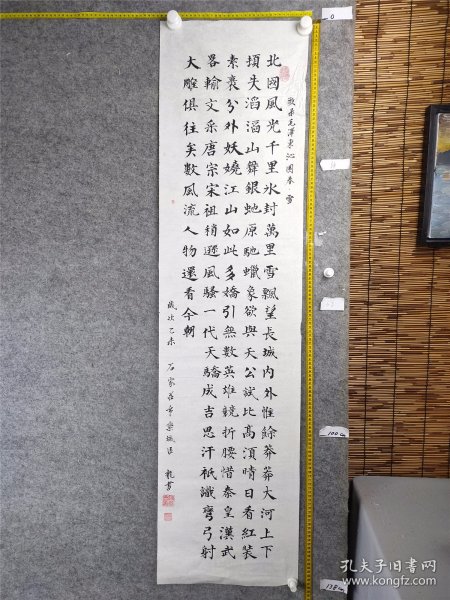 毛澤東沁園春·雪
北國風光千里冰封萬里雪飄望長城內外惟餘莽莽大河上下
頓失滔滔山舞銀蛇原馳蠟象欲與天公試比高須晴日看紅裝
素裹分外妖嬈江山如此多嬌引無數英雄競折腰惜秦皇漢武
畧輸文采唐宗宋祖稍遜風騷一代天驕成吉思汗祇識彎弓射
大雕俱往矣數風流人物還看今朝
歲次乙未 石家莊市欒城區
0
100cm
138cm
孔夫子旧书网
www.kongfz.com